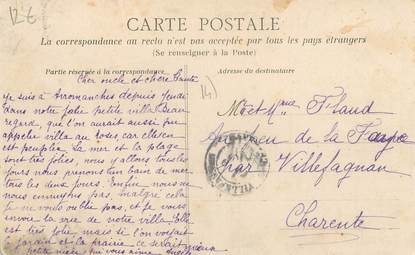 12 €
CARTE POSTALE
La correspondance au recto n'est pas acceptée par tous les pays étrangers
(Se renseigner à la Poste)
Partie réservée à la correspondance
Adresse du destinataire
Cher oncle et chère tante
je suis à Arromanches depuis jeudi
dans notre jolie petite villa Beau
regard, que l'on aurait aussi pu
appeler villa aux roses car elle en
est peuplée. La mer et la plage
sont très jolies, nous y allons tous les
jours nous prenons bain de mer
tous les deux jours. Enfin nous ne
nous ennuyons pas, malgré cela
je ne vous oublie pas, et je vous
envoie la vue de notre villa. Elle
est très jolie mais si l'on voyait
le jardin et la prairie ce serait mieux
petite nièce qui vous aime
(14)
M et Mme
de la
par Villefagnan
Charente